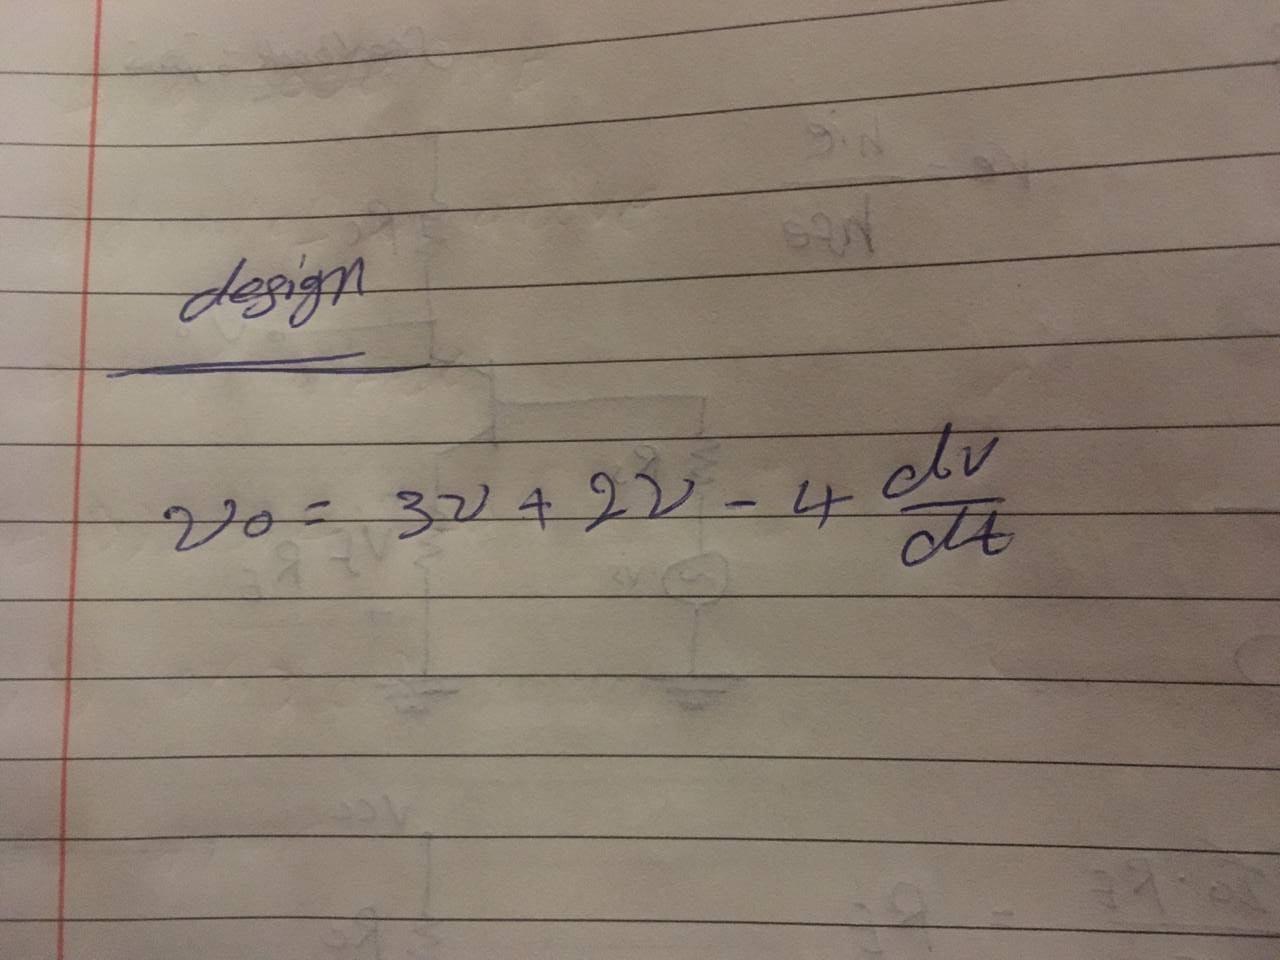 design
v0 = 3v + 2v - 4 dv/dt